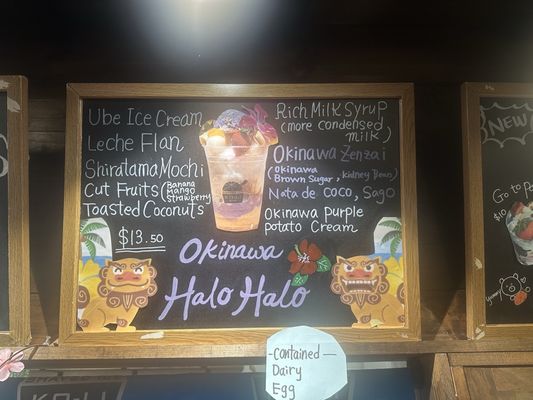 Ube Ice Cream
Leche Flan
Shiratama Mochi
Cut Fruits (Banana
Mango
Strawberry
Toasted Coconuts
$13.50
Rich Milk Syrup
(more condensed
milk)
Okinawa Zenzai
(Okinawa
Brown Sugar, kidney Bean)
Nata de coco, Sago
Okinawa purple
potato Cream
Okinawa
Halo Halo
-Contained-
Dairy
Egg
NEW
Go to Po
$10